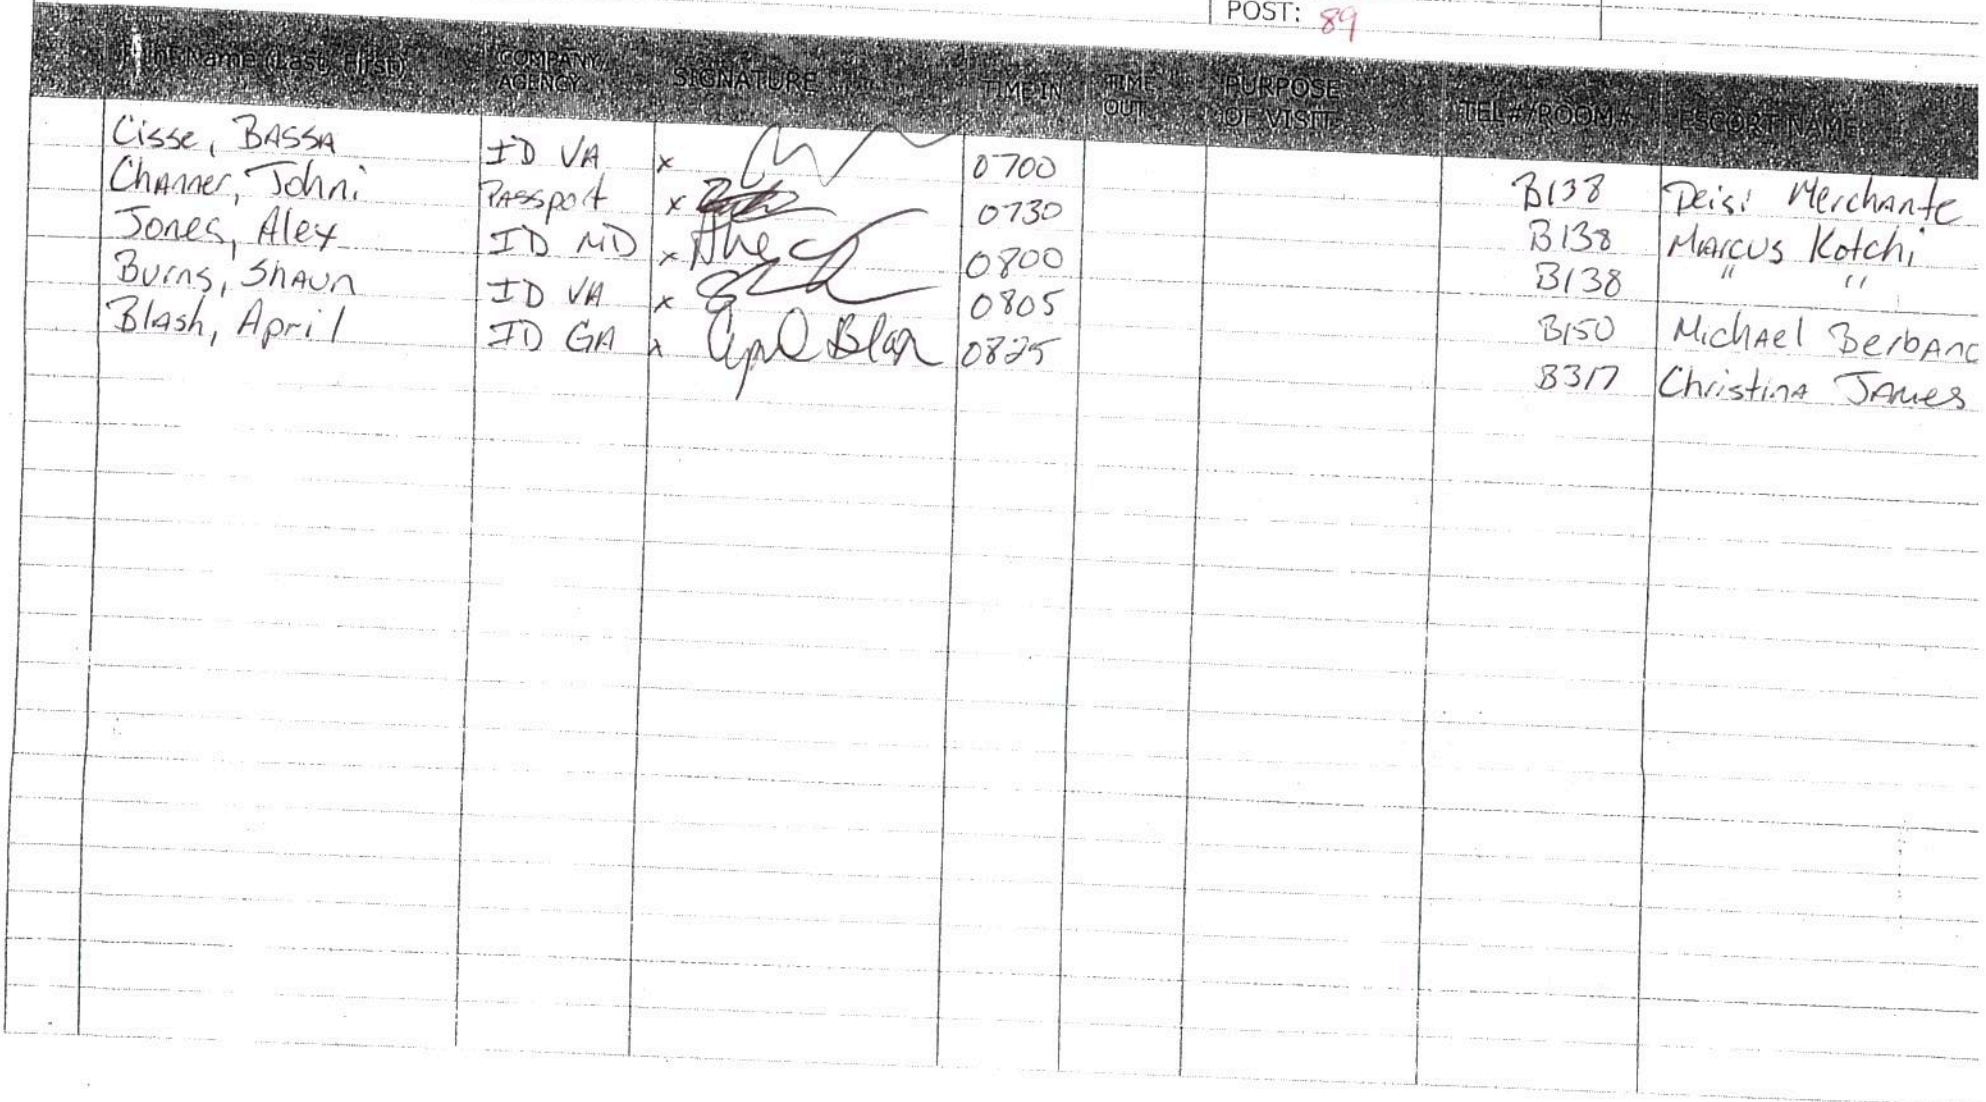 POST: 89
Print Name (Last, First) COMPANY/ AGENCY SIGNATURE TIME IN TIME OUT PURPOSE OF VISIT TEL#/ROOM# ESCORT NAME
Cisse, BASSA ID VA x 0700 B138 Deisi Merchante
Channer, Johni Passport x 0730 B138 Marcus Kotchi
Jones, Alex ID MD x 0800 B138 " "
Burns, Shaun ID VA x 0805 B150 Michael Berbanc
Blash, April ID GA x 0825 B317 Christina James